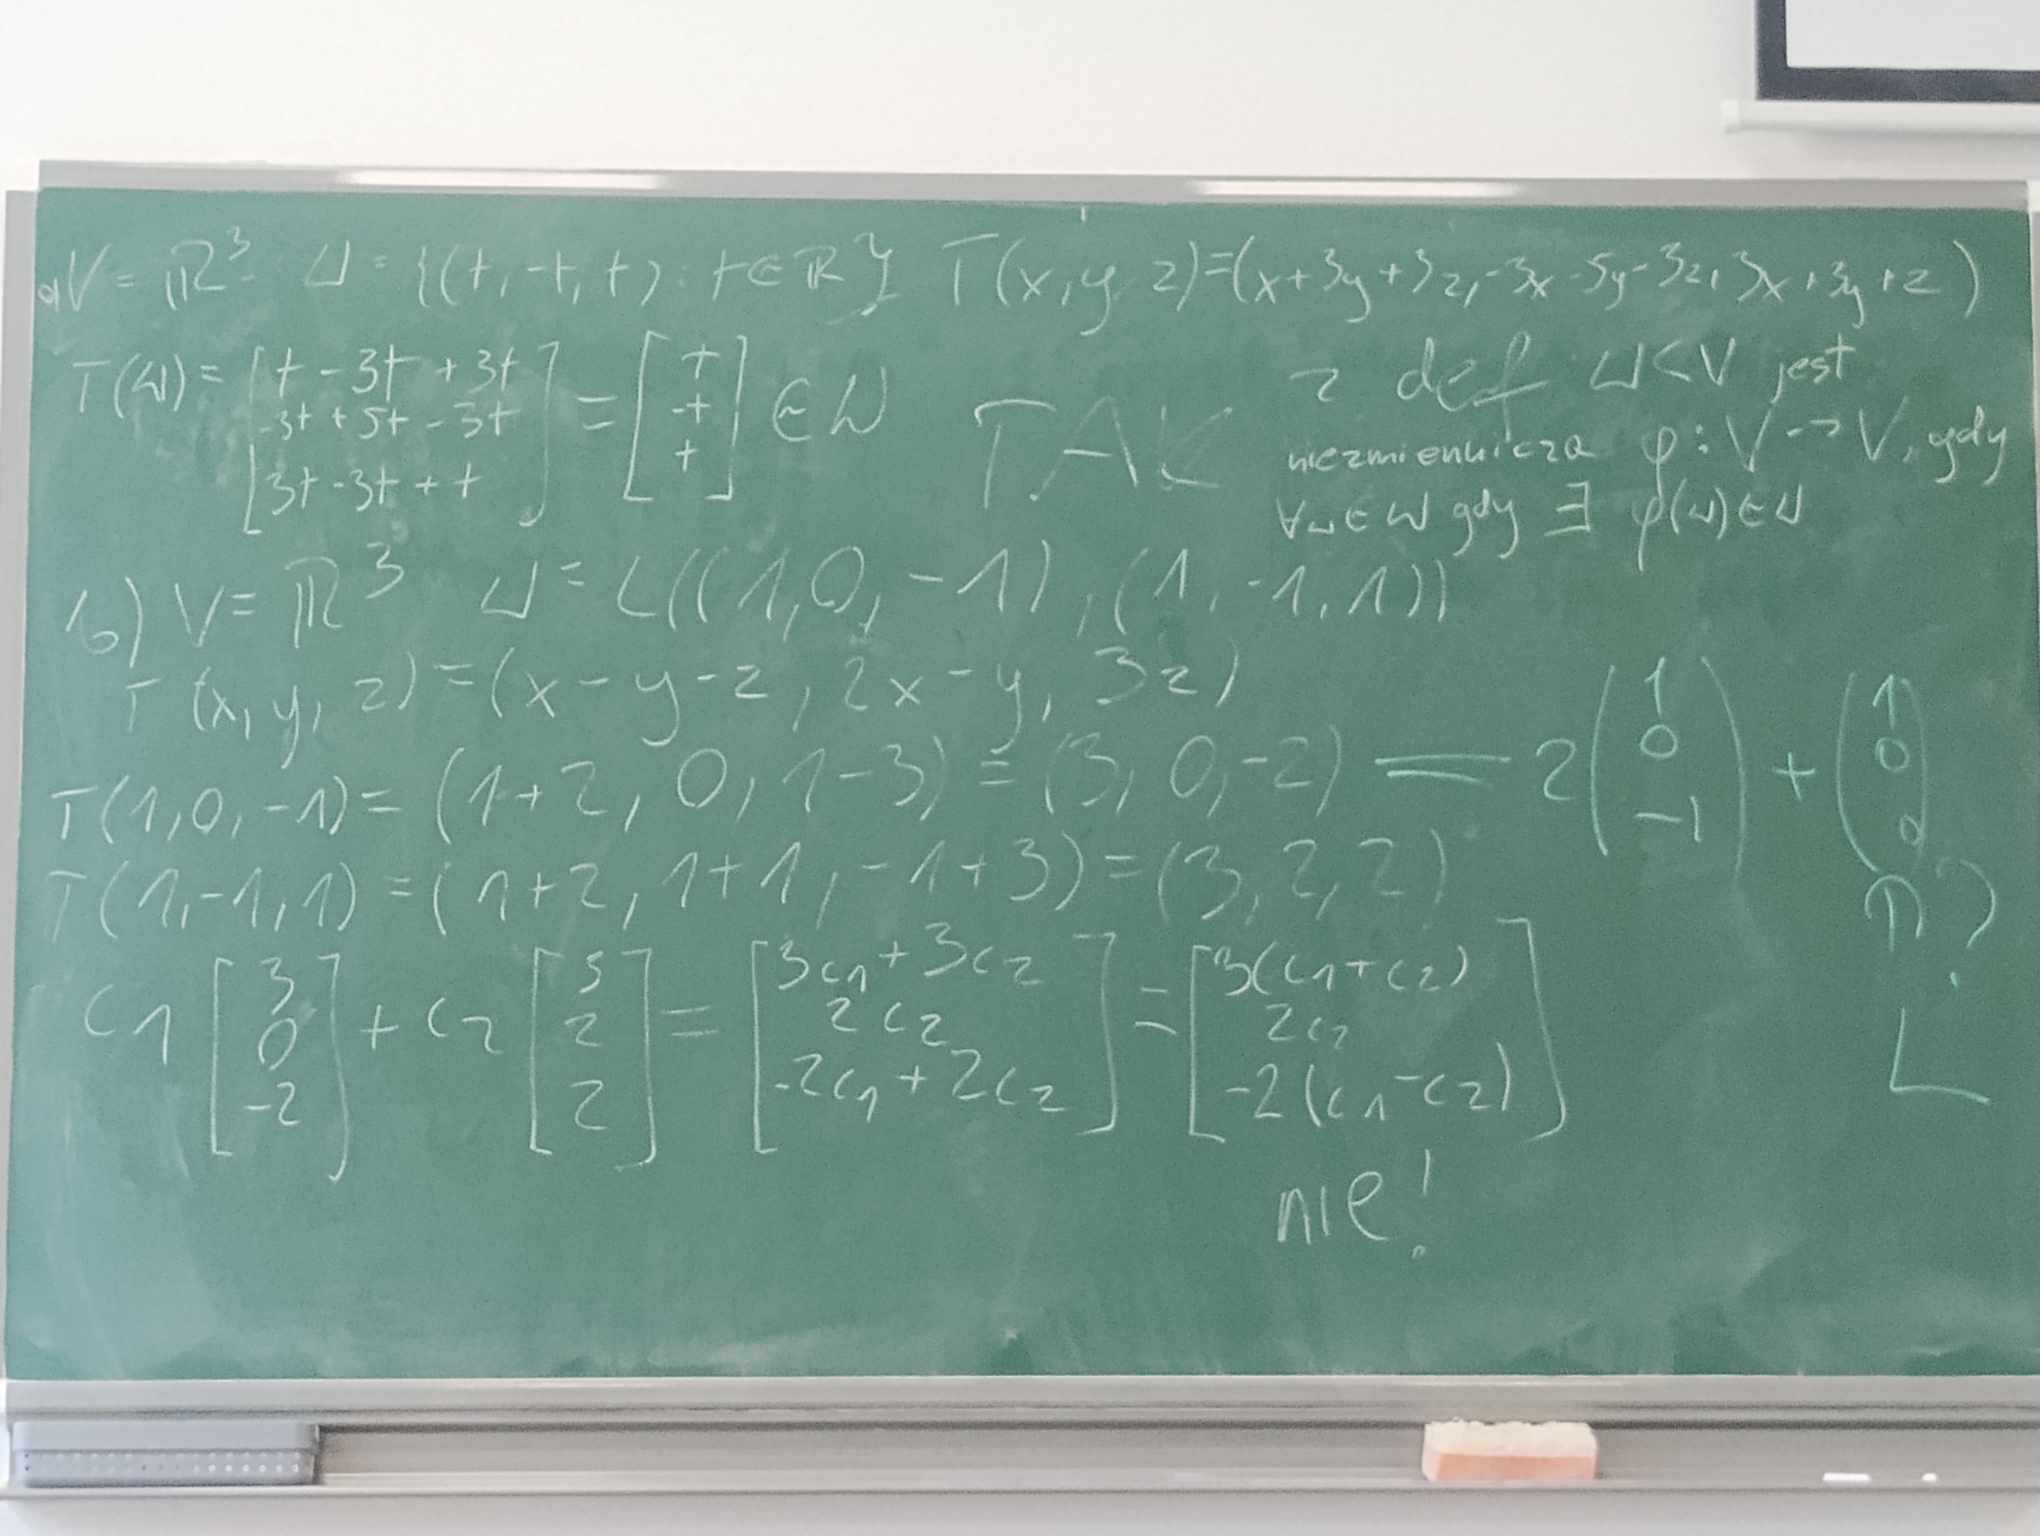 a) V = ℝ³ W = {(t, -t, t) : t ∈ ℝ} T(x, y, z) = (x+3y+3z, -3x-5y-3z, 3x+3y+z)
T(W) = [t - 3t + 3t
-3t + 5t - 3t
3t - 3t + t] = [t
-t
t] ∈ W TAK
z def W < V jest
niezmiennicza φ: V → V, gdy
∀w ∈ W gdy ∃ φ(w) ∈ W
b) V = ℝ³ W = L((1, 0, -1), (1, -1, 1))
T(x, y, z) = (x - y - z, 2x - y, 3z)
T(1, 0, -1) = (1+2, 0, 1-3) = (3, 0, -2) = 2(1
0
-1) + (1
0
0)
T(1, -1, 1) = (1+2, 1+1, -1+3) = (3, 2, 2)
∩?
L
c1 [3
0
-2] + c2 [3
2
2] = [3c1 + 3c2
2c2
-2c1 + 2c2] = [3(c1 + c2)
2c2
-2(c1 - c2)]
nie!